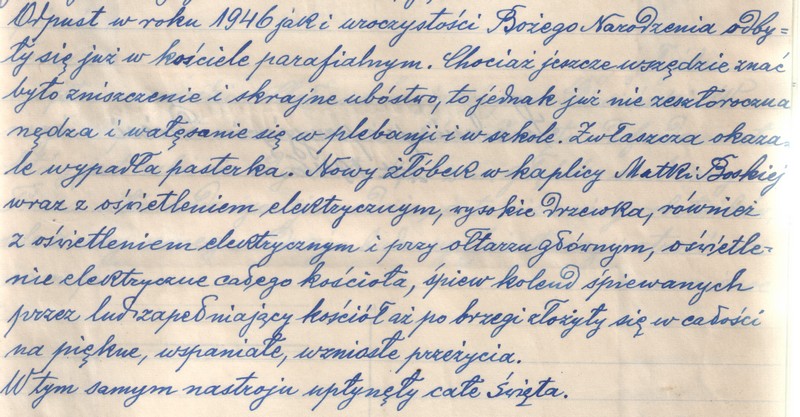 Odpust w roku 1946 jak i uroczystości Bożego Narodzenia odby=
ły się już w kościele parafialnym. Chociaż jeszcze wszędzie znać
było zniszczenie i skrajne ubóstwo, to jednak już nie zeszłoroczna
nędza i wałęsanie się w plebanji i w szkole. Zwłaszcza okaza-
le wypadła pasterka. Nowy żłóbek w kaplicy Matki Boskiej
wraz z oświetleniem elektrycznym, wysokie drzewka, również
z oświetleniem elektrycznym i przy ołtarzu głównym, oświetle-
nie elektryczne całego kościoła, śpiew kolend śpiewanych
przez lud zapełniający kościół aż po brzegi złożyły się w całości
na piękne, wspaniałe, wzniosłe przeżycia.
W tym samym nastroju upłynęły całe Święta.